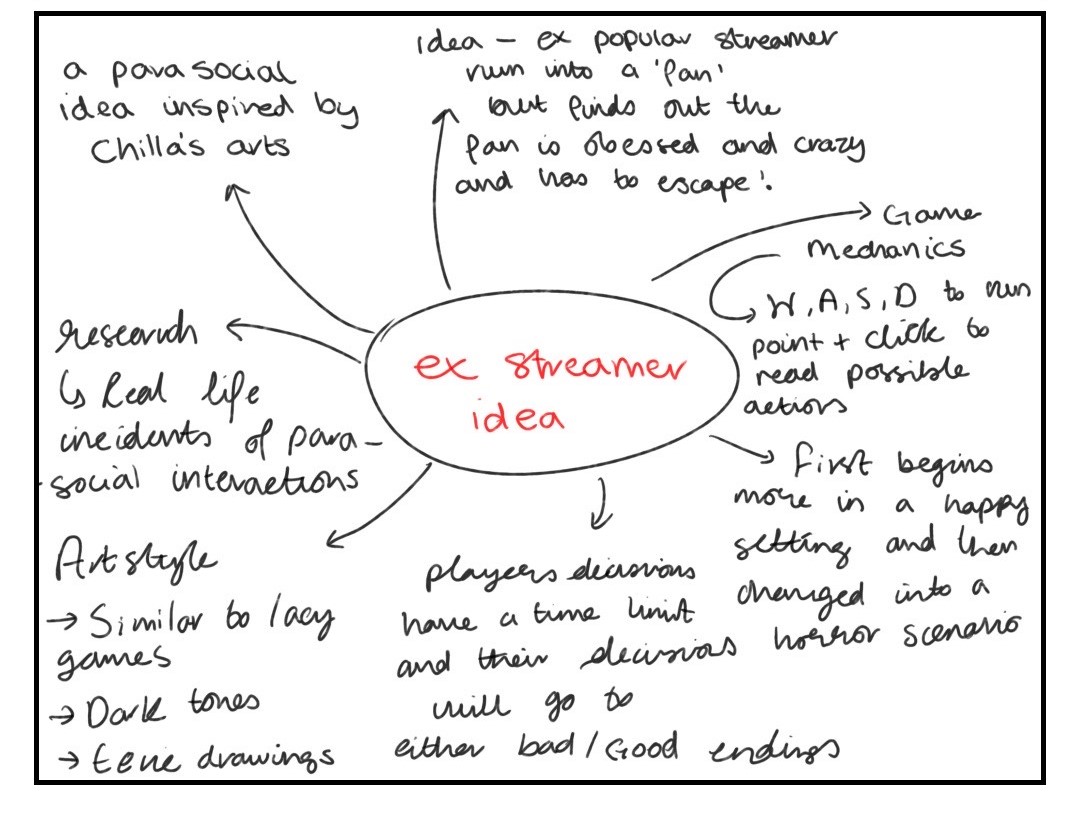 a parasocial
idea inspired by
Chilla's arts
idea – ex popular streamer
run into a 'fan'
but finds out the
fan is obessed and crazy
and has to escape!
Game
mechanics
W, A, S, D to run
point + click to
read possible
actions
research
↳ Real life
incidents of para-
-social interactions
ex streamer
idea
First begins
more in a happy
setting and then
changed into a
horror scenario
Art style
→ Similar to lacy
games
→ Dark tones
→ Eerie drawings
players decisions
have a time limit
and their decisions
will go to
either bad/Good endings